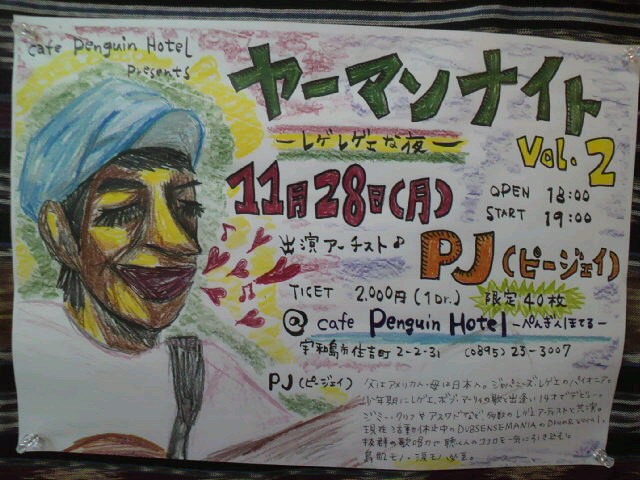 cafe Penguin Hotel
presents
ヤーマンナイト
ーレゲレゲェな夜ー
Vol. 2
11月28日(月)
OPEN 18:00
START 19:00
出演アーチスト♪
PJ (ピージェイ)
TICET 2.000円 (1Dr.) 限定40枚
@ cafe Penguin Hotel ーぺんぎんほてるー
宇和島市住吉町2-2-31 (0895) 23-3007
PJ (ピージェイ) 父はアメリカ人・母は日本人。ジャパニーズレゲエのパイオニア。
少年期にレゲエ、ボブ・マーリィの歌と出逢い 14才でデビュー。
ジミー・クリフやアスワドなど 多数のレゲエアーティストと共演。
現在 活動休止中のDUBSENSEMANIAのDrum&Vocal.
抜群の歌唱力で聴く人のココロを一気に引き込む
鳥肌モノ・涙モノ必至。